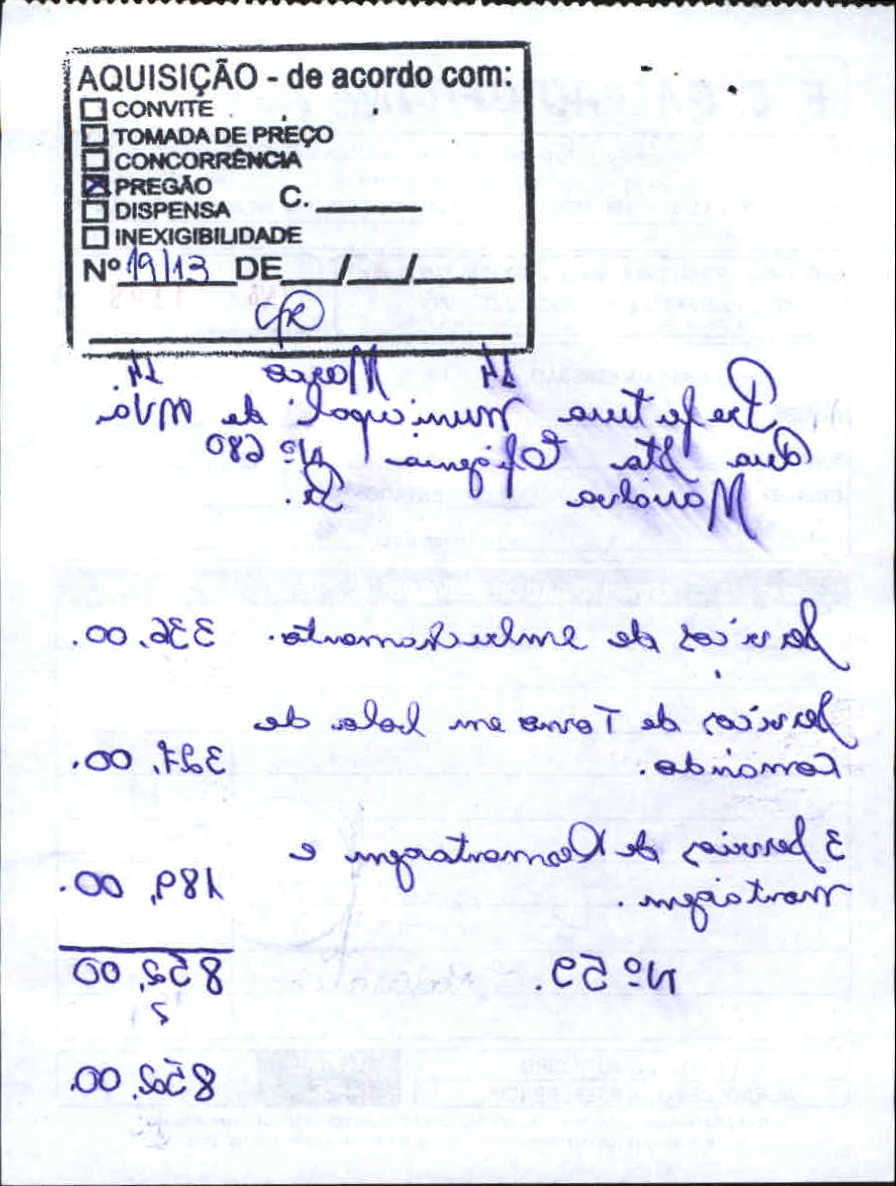 AQUISIÇÃO - de acordo com:
CONVITE
TOMADA DE PREÇO
CONCORRÊNCIA
PREGÃO
DISPENSA C. ______
INEXIGIBILIDADE
Nº 19/13 DE ___/___/_____
14 Março 14.
Prefeitura Municipal de MVa
Rua Sta Efigenia Nº 680
Marialva Pr.
Servicos de embuchamento. 336,00.
Servicos de Torno em bola de
Comando. 327,00.
3 Servicos de Desmontagem e
montagem. 189,00.
Nº 59. 852,00
852,00.